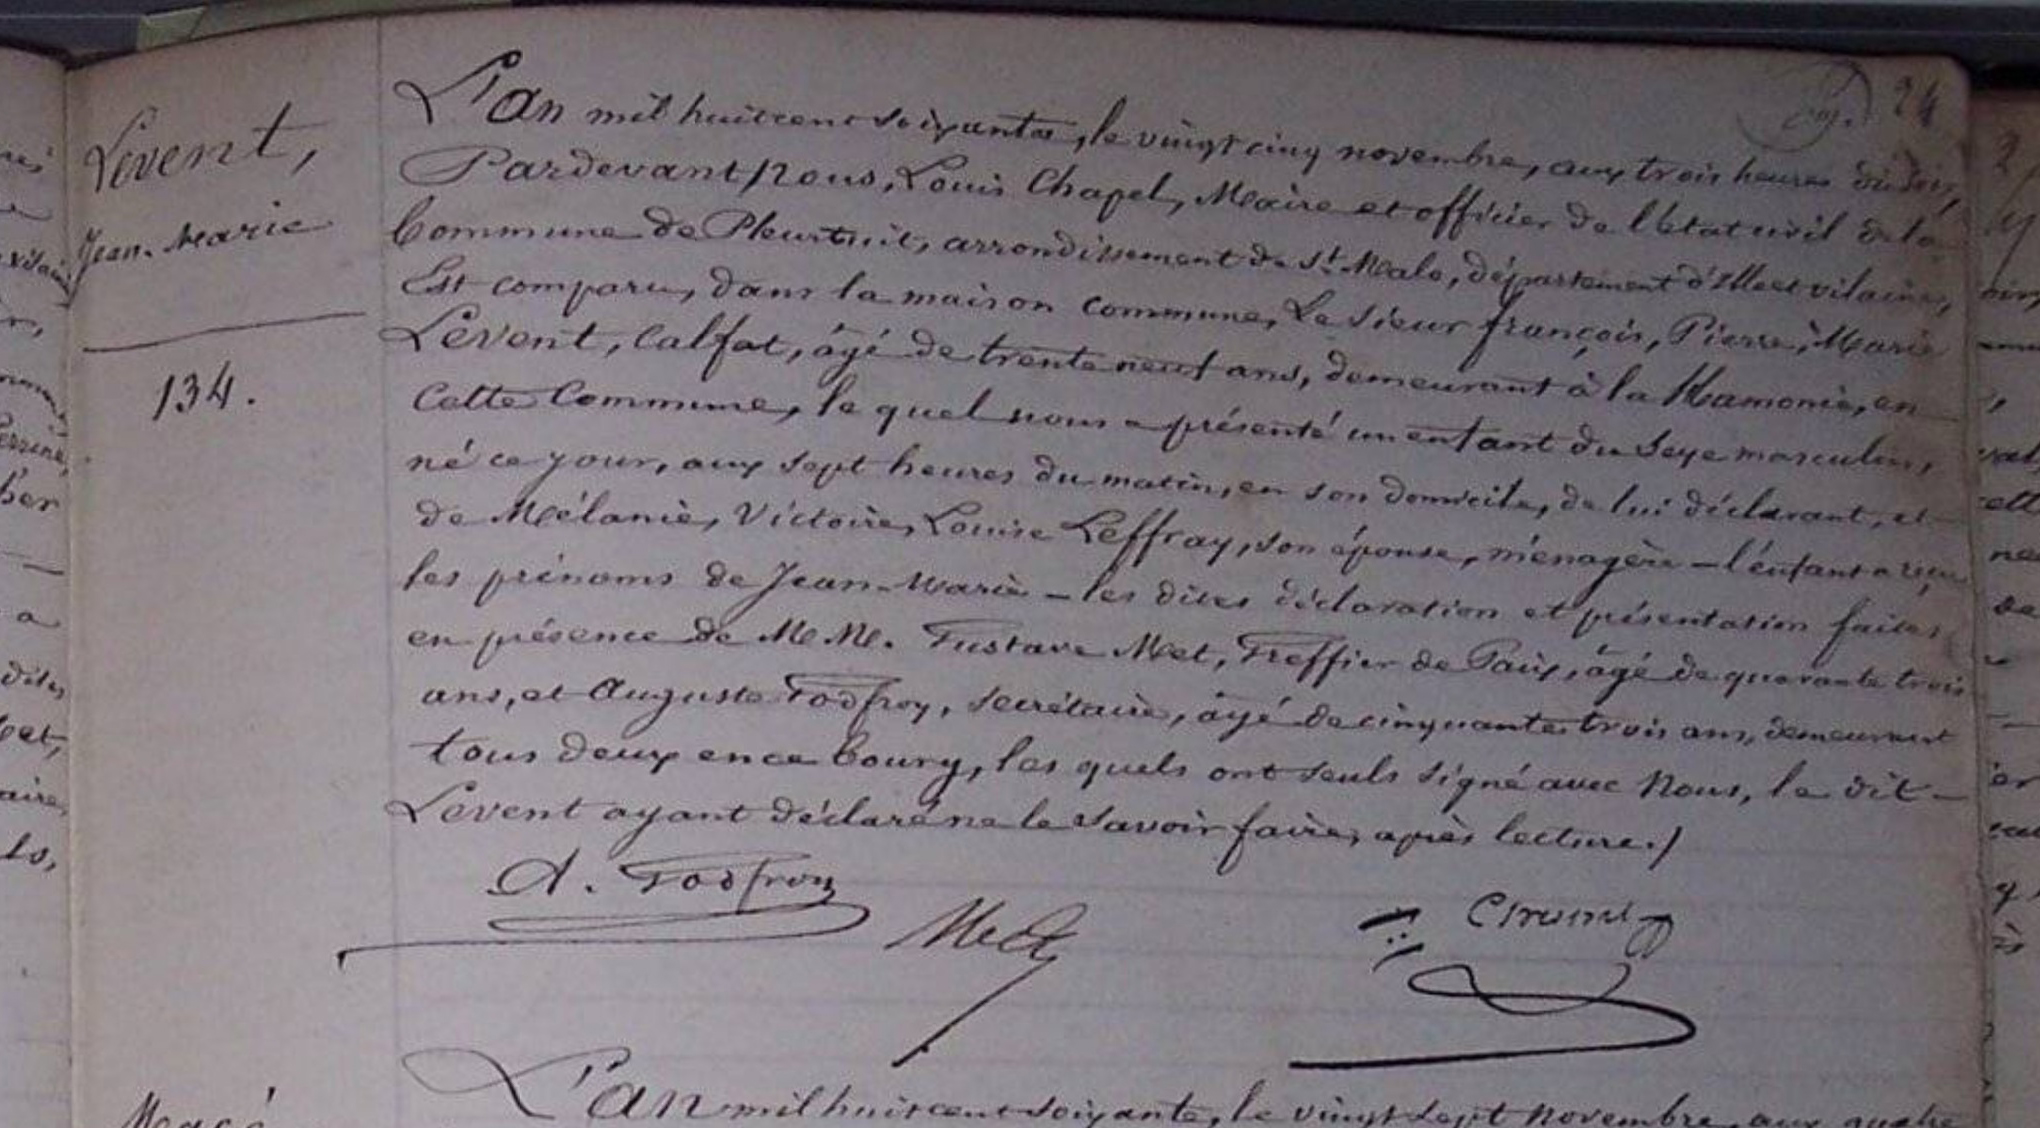 24
Lévent,
Jean-Marie
134.
L'an mil huit cent soixante, le vingt cinq novembre, aux trois heures du soir,
Pardevant Nous, Louis Chapel, Maire et officier de l'état civil de la
Commune de Pleurtuit, arrondissement de St. Malo, département d'Ille et vilaine,
Est comparu, dans la maison commune, Le sieur françois, Pierre, Marie
Lévent, Calfat, âgé de trente neuf ans, demeurant à la Hamonie, en
cette Commune, le quel nous a présenté un enfant du Sexe masculin,
né ce jour, aux sept heures du matin, en son domicile, de lui déclarant, et
de Mélanie, Victoire, Louise Leffray, son épouse, ménagère – l'enfant a reçu
les prénoms de Jean-Marie – les dites déclaration et présentation faites
en présence de M.M. Gustave Met, Greffier de Paix, âgé de quarante trois
ans, et Auguste Godfroy, secrétaire, âgé de cinquante trois ans, demeurant
tous deux en ce bourg, les quels ont seuls signé avec Nous, le dit –
Lévent ayant déclaré ne le savoir faire, après lecture./
A. Godfroy
Met
L'an mil huit cent soixante, le vingt sept novembre, aux quatre
Macé